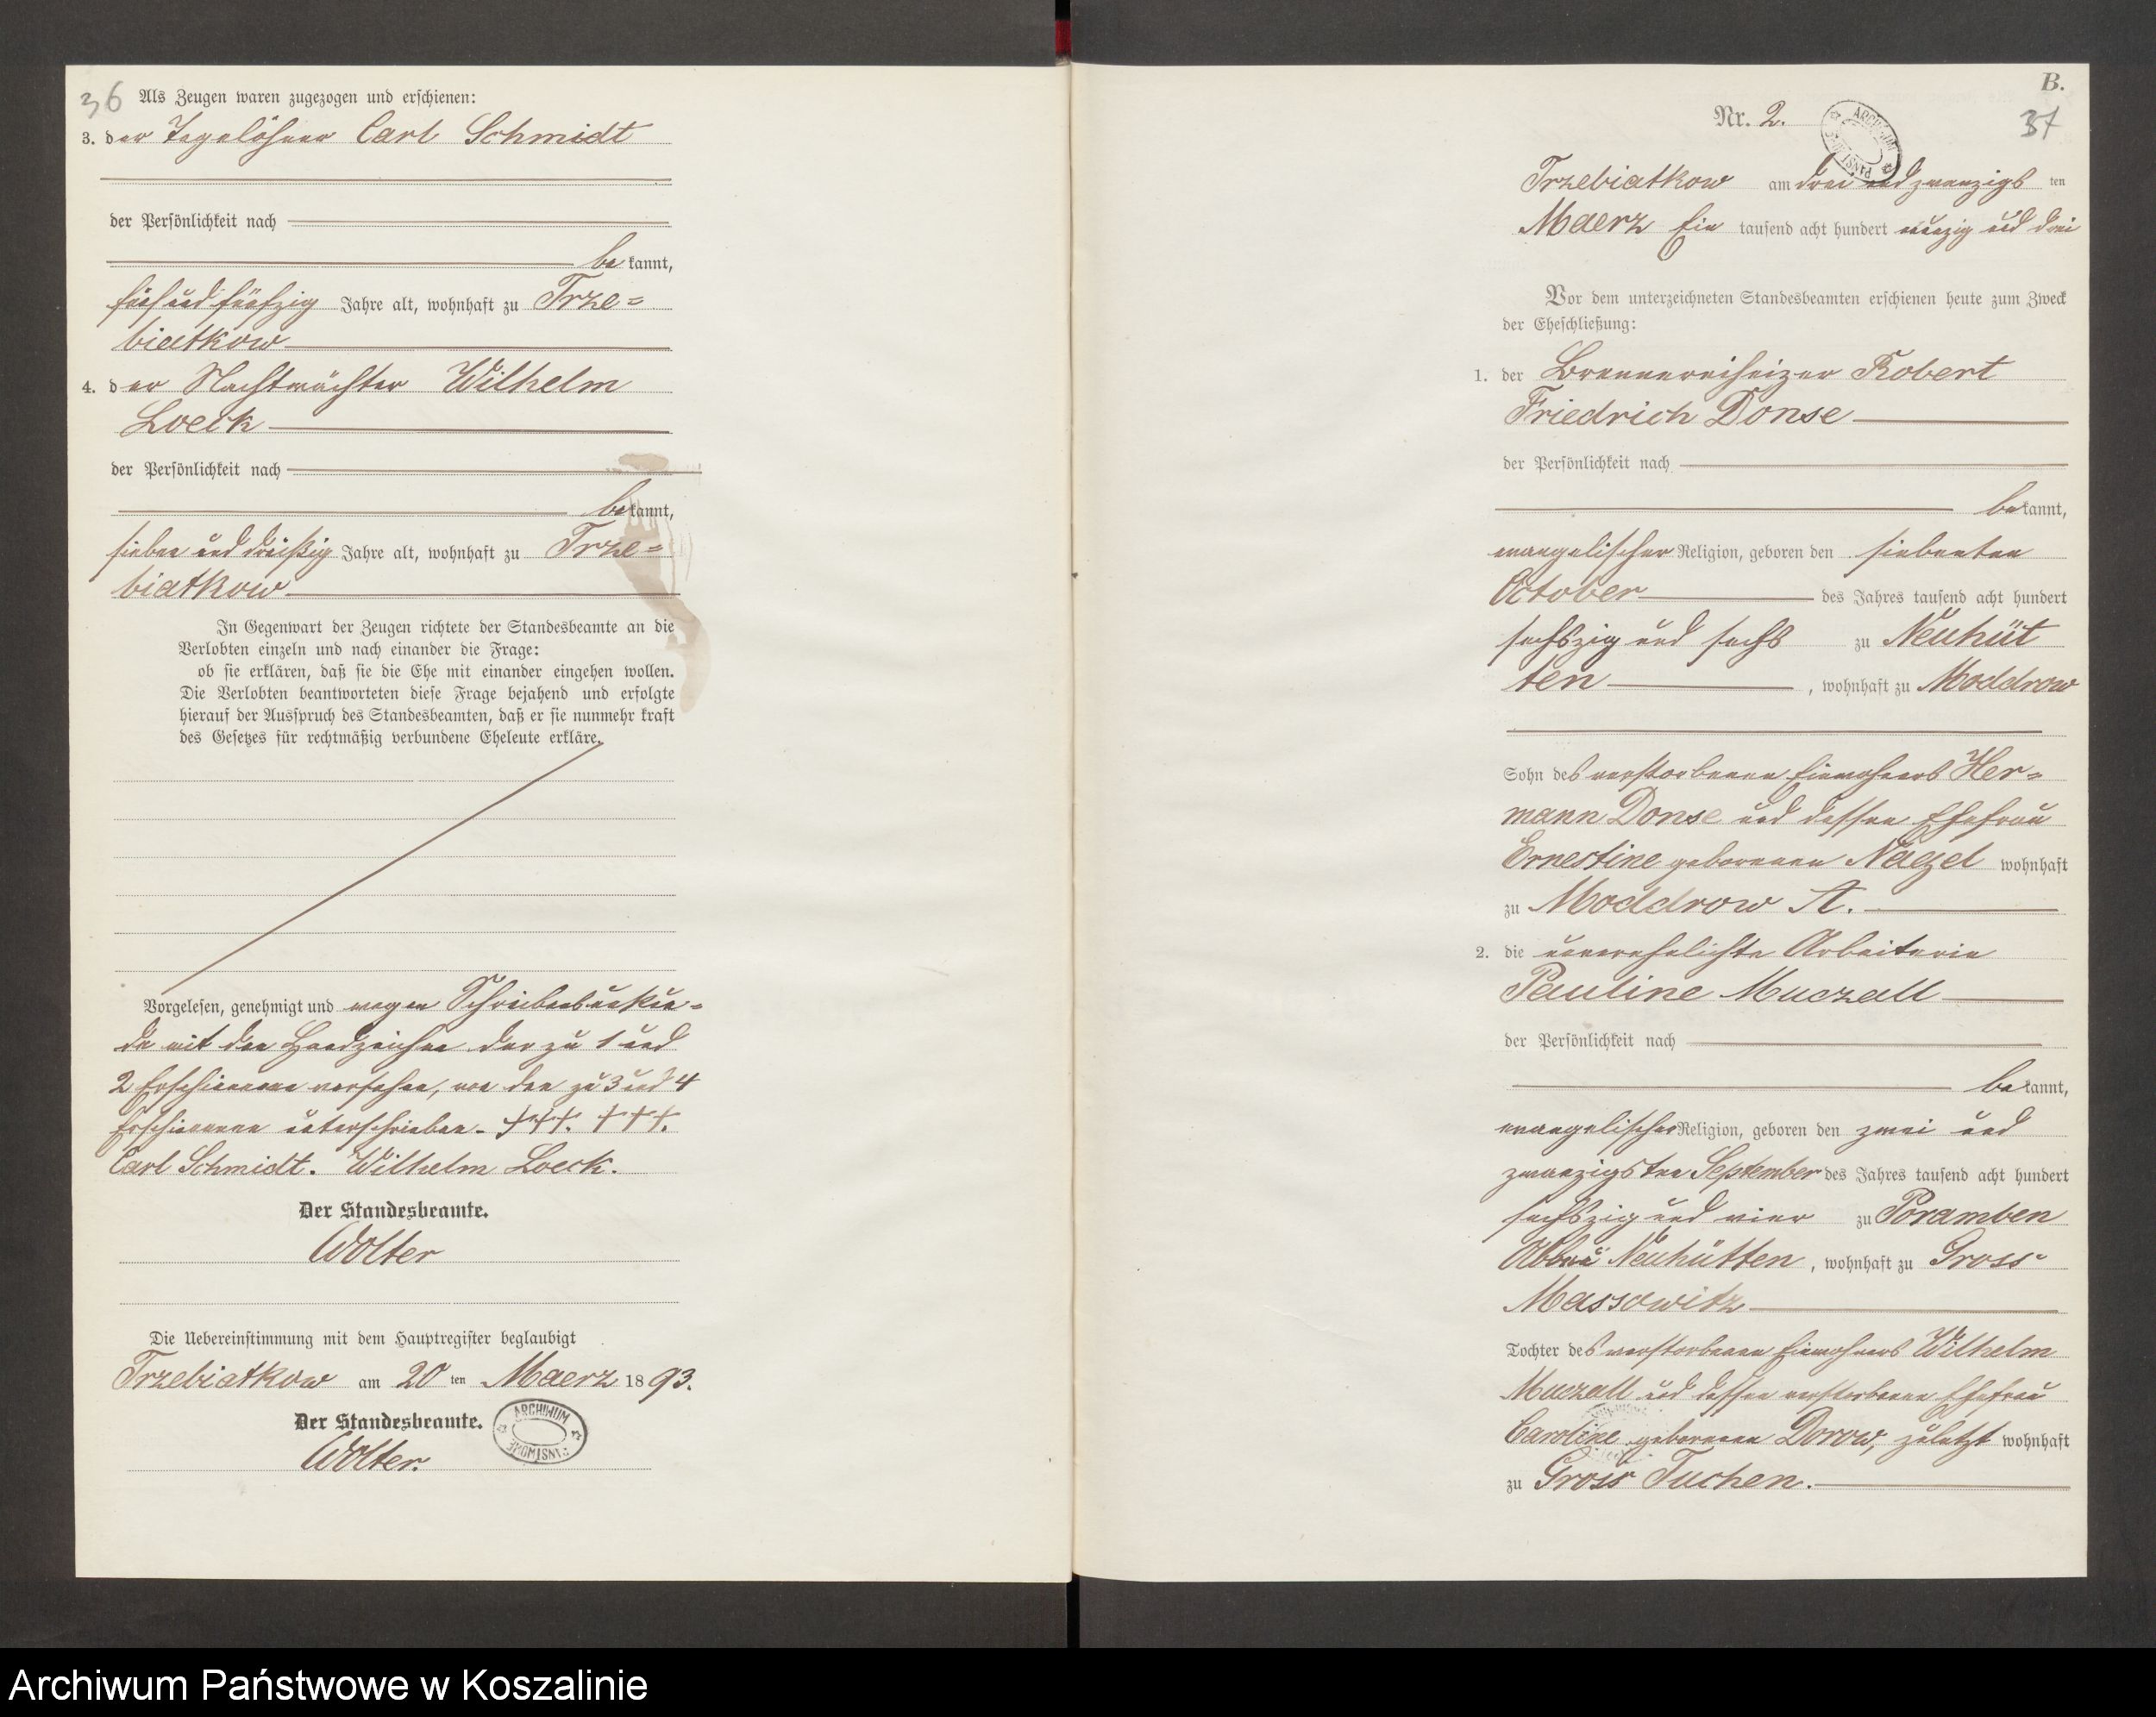 36 Als Zeugen waren zugezogen und erschienen:
3. der Tagelöhner Carl Schmidt
der Persönlichkeit nach
bekannt,
fünf und fünfzig Jahre alt, wohnhaft zu Trze=
biatkow
4. der Nachtwächter Wilhelm
Loeck
der Persönlichkeit nach
bekannt,
sieben und dreißig Jahre alt, wohnhaft zu Trze=
biatkow
In Gegenwart der Zeugen richtete der Standesbeamte an die
Verlobten einzeln und nach einander die Frage:
ob sie erklären, daß sie die Ehe mit einander eingehen wollen.
Die Verlobten beantworteten diese Frage bejahend und erfolgte
hierauf der Ausspruch des Standesbeamten, daß er sie nunmehr kraft
des Gesetzes für rechtmäßig verbundene Eheleute erkläre.
Vorgelesen, genehmigt und wegen Schreibensunkun=
de mit den Handzeichen der zu 1 und
2 Erschienenen versehen, von den zu 3 und 4
Erschienenen unterschrieben. +++. +++.
Carl Schmidt. Wilhelm Loeck.
Der Standesbeamte.
Wolter
Die Uebereinstimmung mit dem Hauptregister beglaubigt
Trzebiatkow am 20ten Maerz 1893.
Der Standesbeamte.
Wolter.
ARCHIWUM PAŃSTWOWE
B.
37
Nr. 2.
ARCHIWUM PAŃSTWOWE
Trzebiatkow am drei und zwanzigsten
Maerz Ein tausend acht hundert neunzig und drei
Vor dem unterzeichneten Standesbeamten erschienen heute zum Zweck
der Eheschließung:
1. der Brennereiheizer Robert
Friedrich Donse
der Persönlichkeit nach
bekannt,
evangelischer Religion, geboren den siebenten
October des Jahres tausend acht hundert
sechszig und sechs zu Neuhüt
ten, wohnhaft zu Moddrow
Sohn des verstorbenen Einwohners Her=
mann Donse und dessen Ehefrau
Ernestine geborenen Nagel wohnhaft
zu Moddrow A.
2. die unverehelichte Arbeiterin
Pauline Muczall
der Persönlichkeit nach
bekannt,
evangelischer Religion, geboren den zwei und
zwanzigsten September des Jahres tausend acht hundert
sechszig und vier zu Poramben
Abbau Neuhütten, wohnhaft zu Gross
Massowitz
Tochter des verstorbenen Einwohners Wilhelm
Muczall und dessen verstorbenen Ehefrau
Caroline geborenen Dorow, zuletzt wohnhaft
zu Gross Tuchen.
Archiwum Państwowe w Koszalinie